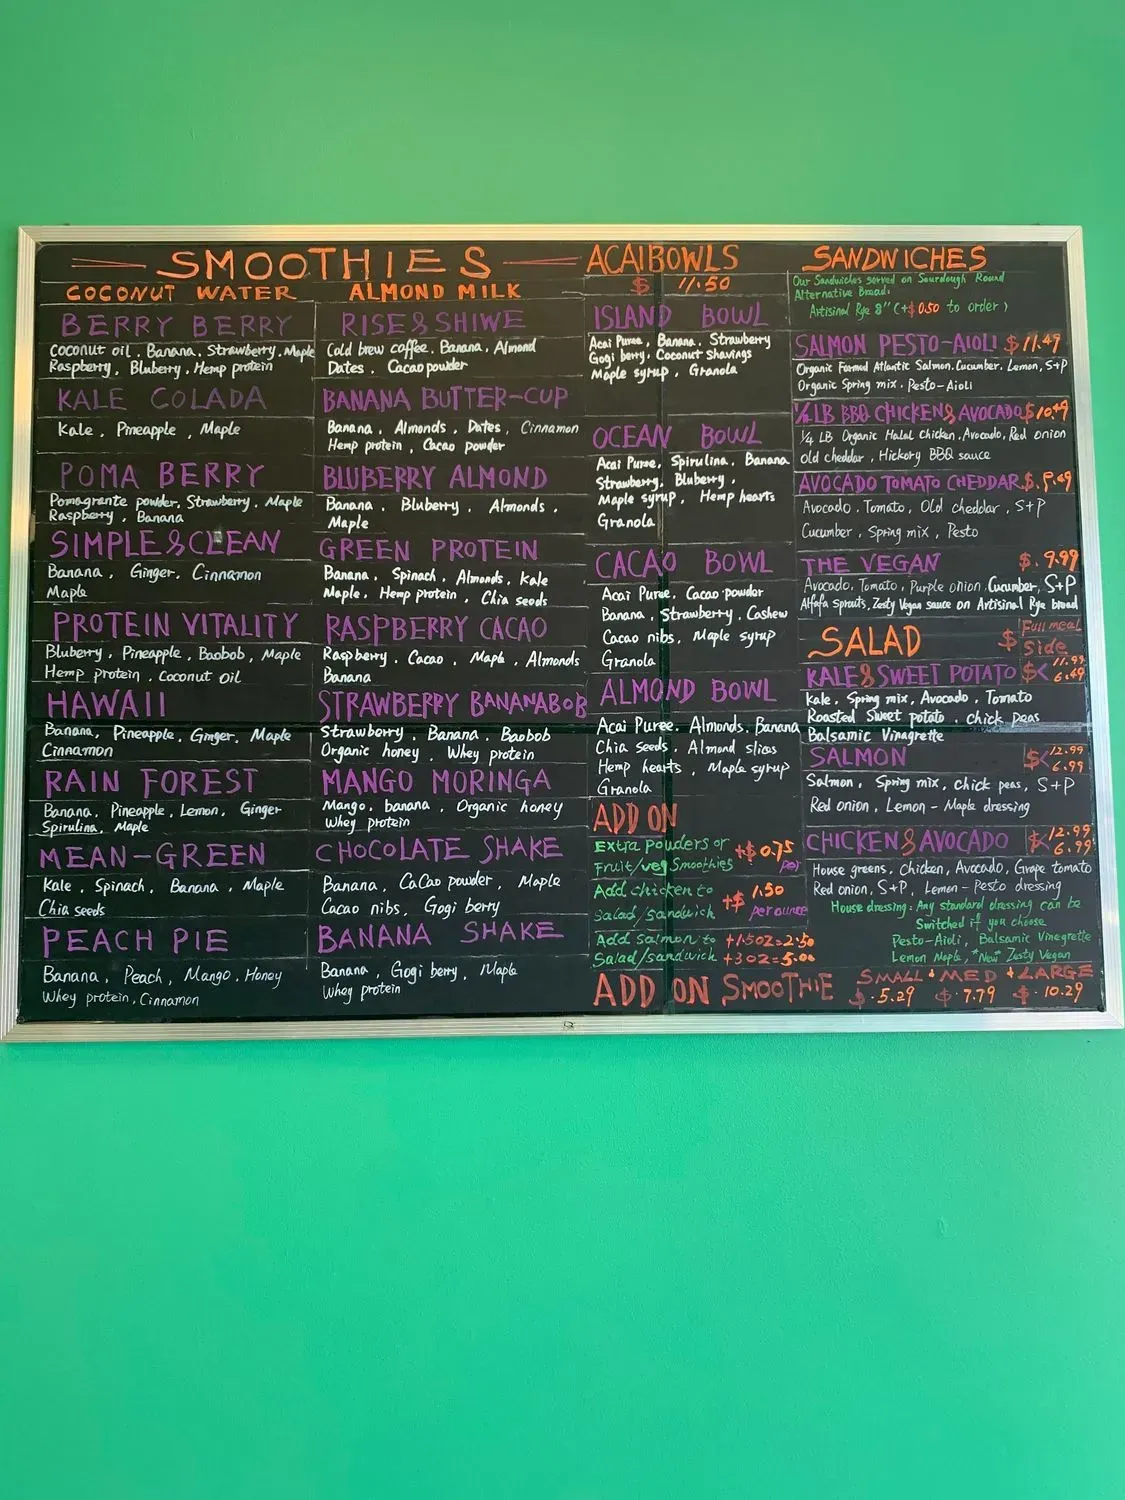 SMOOTHIES
COCONUT WATER
BERRY BERRY
Coconut oil, Banana, Strawberry, Maple
Raspberry, Bluberry, Hemp protein
KALE COLADA
Kale, Pineapple, Maple
POMA BERRY
Pomagrante powder, Strawberry, Maple
Raspberry, Banana
SIMPLE & CLEAN
Banana, Ginger, Cinnamon
Maple
PROTEIN VITALITY
Bluberry, Pineapple, Baobob, Maple
Hemp protein, Coconut Oil
HAWAII
Banana, Pineapple, Ginger, Maple
Cinnamon
RAIN FOREST
Banana, Pineapple, Lemon, Ginger
Spirulina, Maple
MEAN-GREEN
Kale, Spinach, Banana, Maple
Chia seeds
PEACH PIE
Banana, Peach, Mango, Honey
Whey protein, Cinnamon
ALMOND MILK
RISE & SHIWE
Cold brew coffee, Banana, Almond
Dates, Cacao powder
BANANA BUTTER-CUP
Banana, Almonds, Dates, Cinnamon
Hemp protein, Cacao powder
BLUBERRY ALMOND
Banana, Bluberry, Almonds,
Maple
GREEN PROTEIN
Banana, Spinach, Almonds, Kale
Maple, Hemp protein, Chia seeds
RASPBERRY CACAO
Raspberry, Cacao, Maple, Almonds
Banana
STRAWBERRY BANANABOB
Strawberry, Banana, Baobob
Organic honey, Whey protein
MANGO MORINGA
Mango, banana, Organic honey
Whey protein
CHOCOLATE SHAKE
Banana, CaCao powder, Maple
Cacao nibs, Gogi berry
BANANA SHAKE
Banana, Gogi berry, Maple
Whey protein
ACAIBOWLS
$ 11.50
ISLAND BOWL
Acai Puree, Banana, Strawberry
Gogi berry, Coconut shavings
Maple syrup, Granola
OCEAN BOWL
Acai Puree, Spirulina, Banana
Strawberry, Bluberry,
Maple syrup, Hemp hearts
Granola
CACAO BOWL
Acai Puree, Cacao powder
Banana, Strawberry, Cashew
Cacao nibs, Maple syrup
Granola
ALMOND BOWL
Acai Puree, Almonds, Banana
Chia Seeds, Almond slices
Hemp hearts, Maple syrup
Granola
ADD ON
Extra powders or +$0.75
Fruit/veg Smoothies per
Add chicken to +$ 1.50
Salad/sandwich per ounce
Add Salmon to +1.5OZ=2.50
Salad/sandwich +3OZ=5.00
SANDWICHES
Our Sandwiches served on Sourdough Round
Alternative Bread:
Artisinal Rye 8" (+$0.50 to order)
SALMON PESTO-AIOLI $11.49
Organic Farmed Atlantic Salmon, Cucumber, Lemon, S+P
Organic Spring mix, Pesto-Aioli
1/4 LB BBQ CHICKEN & AVOCADO $10.49
1/4 LB Organic Halal Chicken, Avocado, Red onion
Old cheddar, Hickory BBQ sauce
AVOCADO TOMATO CHEDDAR $.9.49
Avocado, Tomato, Old cheddar, S+P
Cucumber, Spring mix, Pesto
THE VEGAN $.9.99
Avocado, Tomato, Purple onion, Cucumber, S+P
Alfafa sprouts, Zesty Vegan sauce on Artisinal Rye bread
SALAD $ Full meal
Side
KALE & SWEET POTATO $< 11.99
6.49
Kale, Spring mix, Avocado, Tomato
Roasted Sweet potato, chick peas
Balsamic Vinagrette
SALMON $< 12.99
6.99
Salmon, Spring mix, chick peas, S+P
Red onion, Lemon-Maple dressing
CHICKEN & AVOCADO $< 12.99
6.99
House greens, Chicken, Avocado, Grape tomato
Red onion, S+P, Lemon-Pesto dressing
House dressing: Any standard dressing can be
Switched if you choose
Pesto-Aioli, Balsamic Vinegrette
Lemon Maple, *New* Zesty Vegan
ADD ON SMOOTHIE
SMALL + MED + LARGE
$.5.29 $.7.79 $.10.29